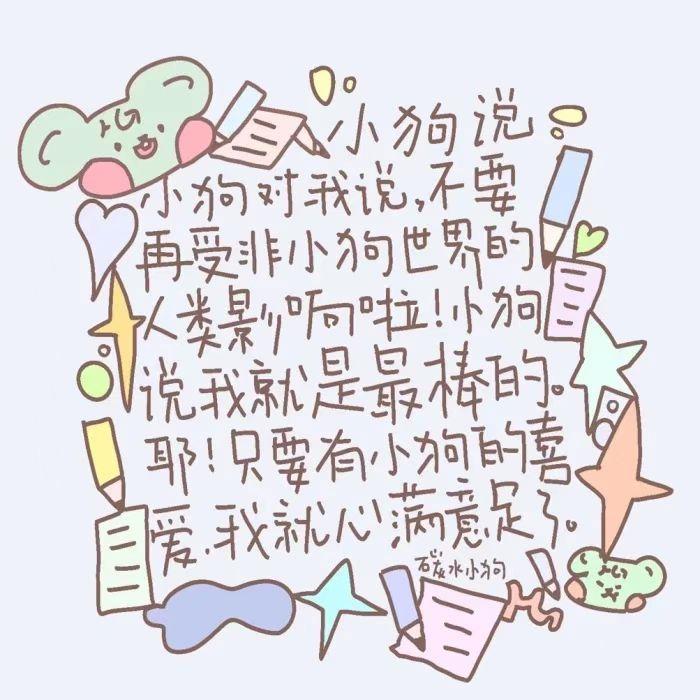 小狗说
小狗对我说,不要
再受非小狗世界的
人类影响啦!小狗
说我就是最棒的。
耶!只要有小狗的喜
爱,我就心满意足了。
碳水小狗